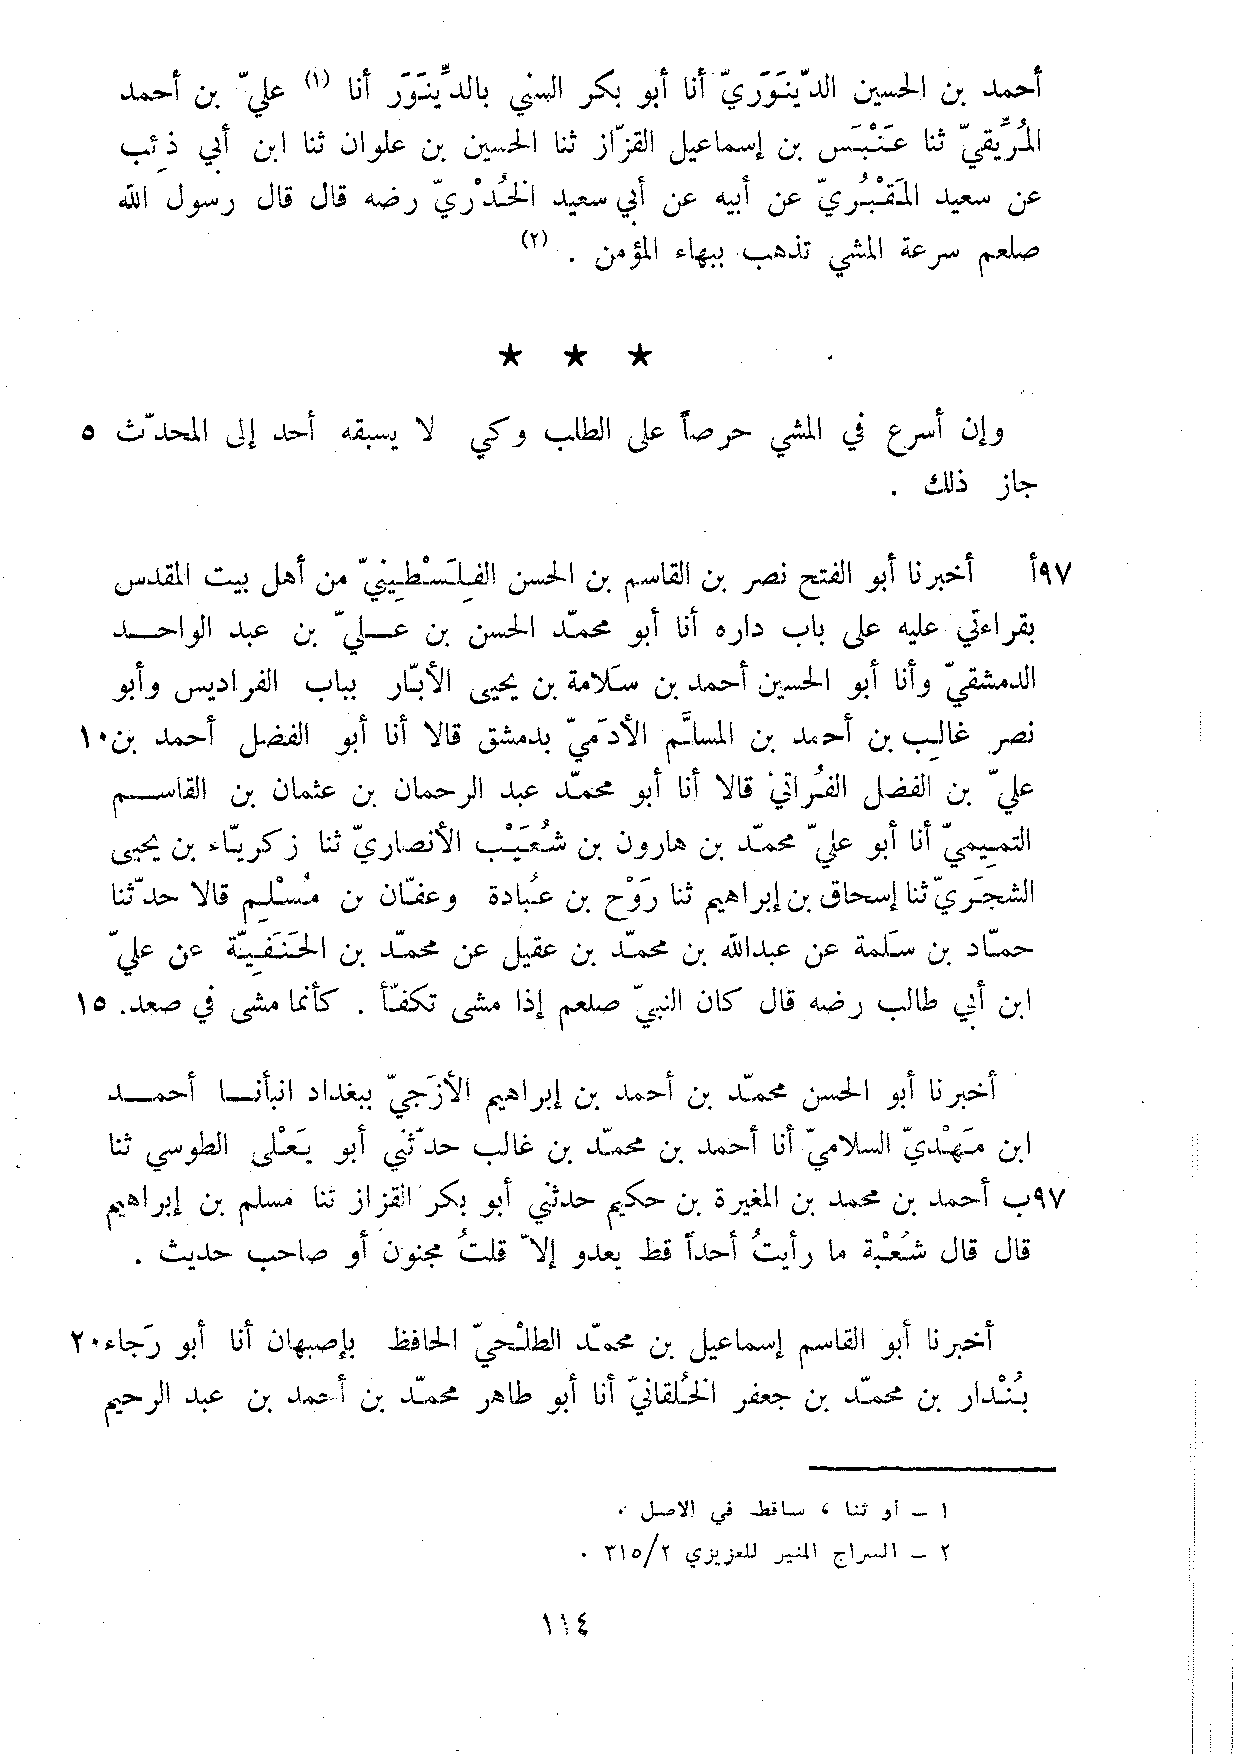 أحمد بن الحسين الدّينَوَريّ أنا أبو بكر السني بالدِّينَوَر أنا (١) عليّ بن أحمد
المُرِّيقيّ ثنا عَنْبَس بن إسماعيل القزّاز ثنا الحسين بن علوان ثنا ابن أبي ذِئب
عن سعيد المَقْبُريّ عن أبيه عن أبي سعيد الخُدْريّ رضه قال قال رسول الله
صلعم سرعة المشي تذهب ببهاء المؤمن . (٢)
★ ★ ★
وإن أسرع في المشي حرصاً على الطلب وكي لا يسبقه أحد إلى المحدّث ٥
جاز ذلك .
٩٧أ أخبرنا أبو الفتح نصر بن القاسم بن الحسن الفِلَسْطِينيّ من أهل بيت المقدس
بقراءتي عليه على باب داره أنا أبو محمّد الحسن بن عـليّ بن عبد الواحـد
الدمشقيّ وأنا أبو الحسين أحمد بن سَلامة بن يحيى الأبّار بباب الفراديس وأبو
نصر غالِب بن أحمد بن المسلَّم الأدَميّ بدمشق قالا أنا أبو الفضل أحمد بن ١٠
عليّ بن الفضل الفُراتيّ قالا أنا أبو محمّد عبد الرحمان بن عثمان بن القاسـم
التميميّ أنا أبو عليّ محمّد بن هارون بن شُعَيْب الأنصاريّ ثنا زكريّاء بن يحيى
الشجَريّ ثنا إسحاق بن إبراهيم ثنا رَوْح بن عُبادة وعفّان ن مُسْلِم قالا حدّثنا
حمّاد بن سَلمة عن عبدالله بن محمّد بن عقيل عن محمّد بن الحَنَفِيّة عن عليّ
ابن أبي طالب رضه قال كان النبيّ صلعم إذا مشى تكفّأ . كأنما مشى في صعد. ١٥
أخبرنا أبو الحسن محمّد بن أحمد بن إبراهيم الأزَجيّ ببغداد انبأنـا أحمـد
ابن مَهْديّ السلاميّ أنا أحمد بن محمّد بن غالب حدّثني أبو يَعْلى الطوسي ثنا
٩٧ب أحمد بن محمد بن المغيرة بن حكيم حدثني أبو بكر القزاز ثنا مسلم بن إبراهيم
قال قال شُعْبة ما رأيتُ أحداً قط يعدو إلاّ قلتُ مجنون أو صاحب حديث .
أخبرنا أبو القاسم إسماعيل بن محمّد الطلْحيّ الحافظ بإصبهان أنا أبو رَجاء ٢٠
بُنْدار بن محمّد بن جعفر الخُلقانيّ أنا أبو طاهر محمّد بن أحمد بن عبد الرحيم
١ – أو ثنا ، ساقط في الاصل .
٢ – السراج المنير للعزيزي ٣١٥/٢ .
١١٤